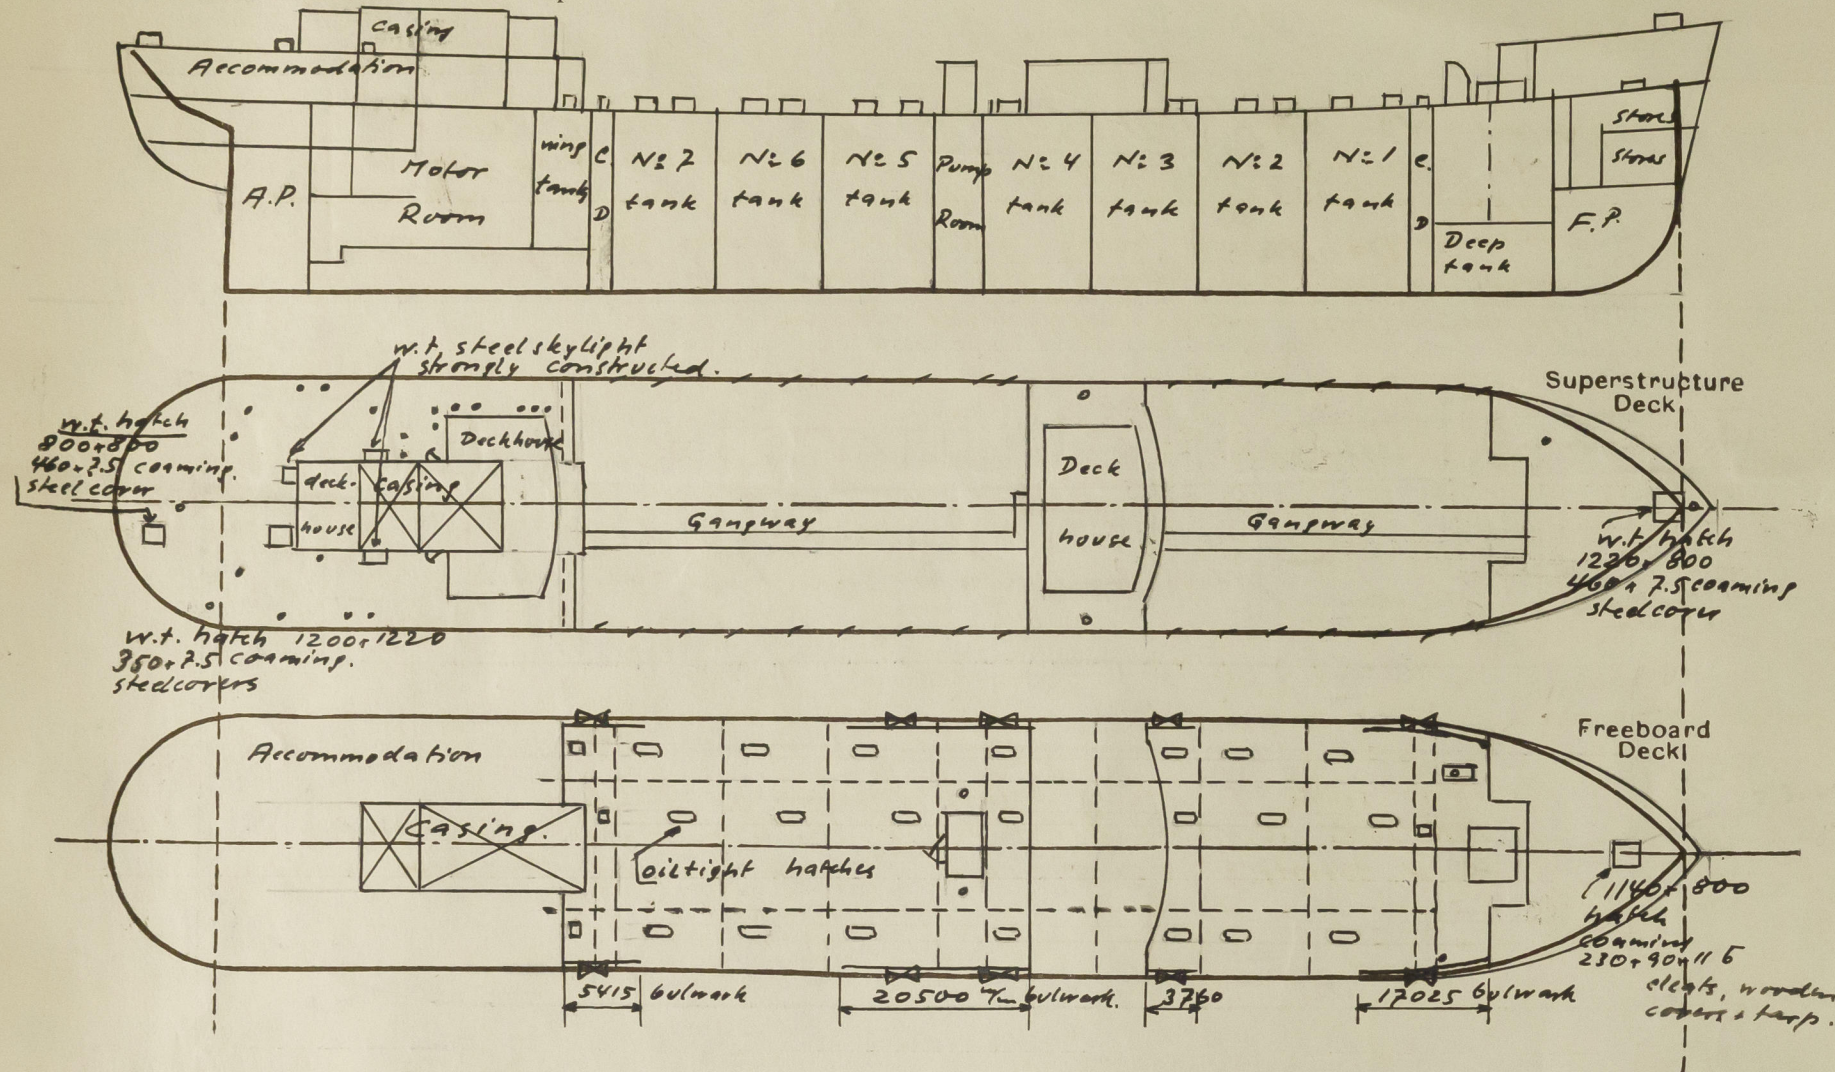 Casing
Accommodation
Motor
Room
A.P.
ning
tank
C.
D
Nº 7
tank
Nº 6
tank
Nº 5
tank
Pump
Room
Nº 4
tank
Nº 3
tank
Nº 2
tank
Nº 1
tank
C.
D
Deep
tank
Stores
Stores
F.P.
w.t. steel skylight
strongly constructed.
Superstructure
Deck
w.t. hatch
800x800
460x7.5 coaming.
steel cover
Deckhouse
deck-
house
Casing
Gangway
Deck
house
Gangway
w.t. hatch
1220x800
460x7.5 coaming
steelcover
w.t. hatch 1200x1220
350x7.5 coaming.
steelcovers
Freeboard
Deck
Accommodation
Casing.
oiltight hatches
1140x800
hatch
coaming
230x90x11 5
cleats, wooden
covers + tarp.
5415 bulwark
20500 m/m bulwark.
3760
17025 bulwark